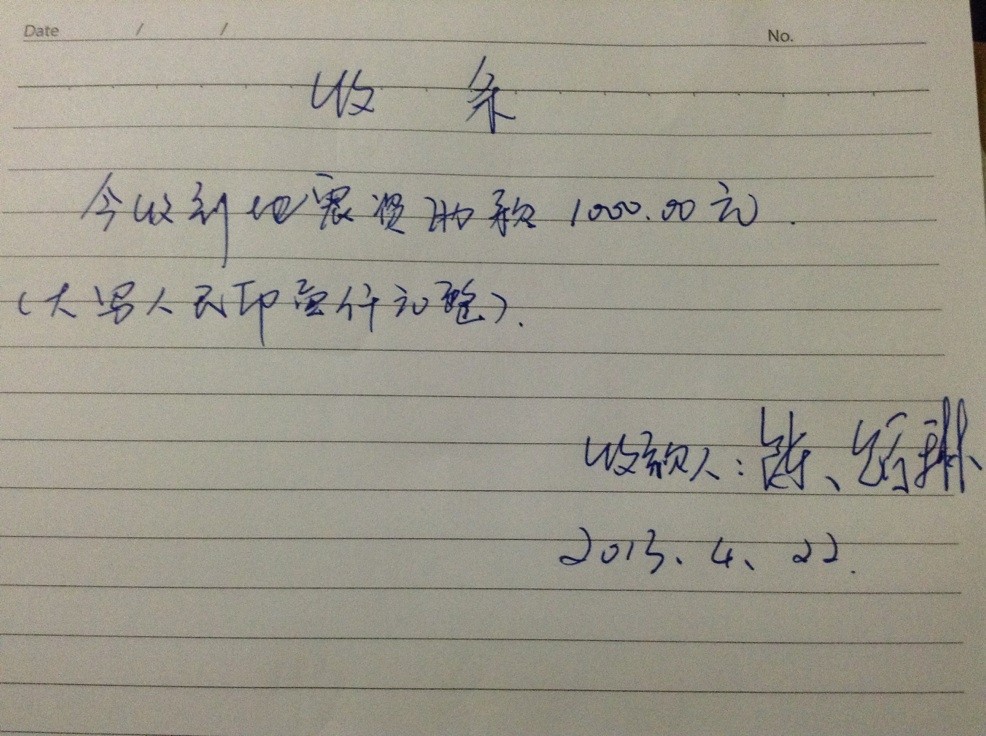 Date / / No.
收 条
今收到地震资助款 1000.00元.
(大写人民币壹仟元整).
收款人:陈、
2013、4、22.